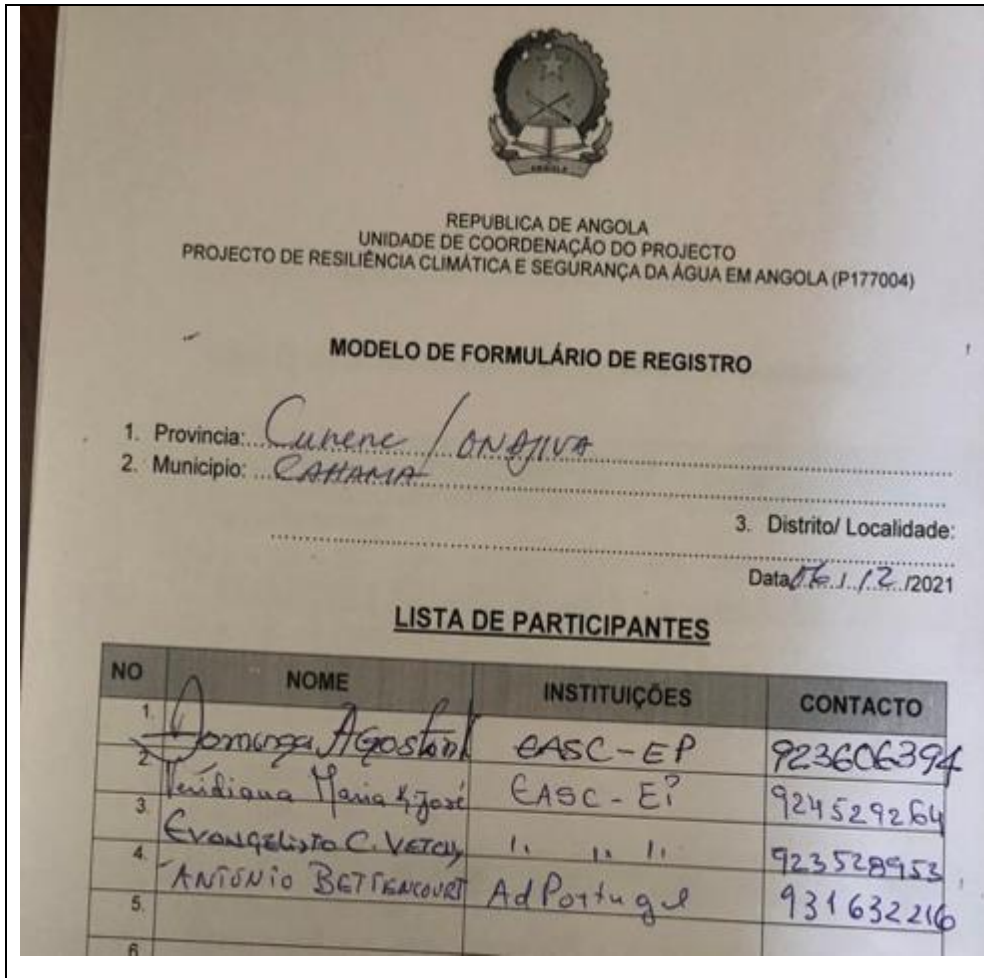 ANGOLA
REPUBLICA DE ANGOLA
UNIDADE DE COORDENAÇÃO DO PROJECTO
PROJECTO DE RESILIÊNCIA CLIMÁTICA E SEGURANÇA DA ÁGUA EM ANGOLA (P177004)
MODELO DE FORMULÁRIO DE REGISTRO
1. Provincia: Cunene / ONDJIVA
2. Municipio: CAHAMA
3. Distrito/ Localidade:
Data 06 / 12 /2021
LISTA DE PARTICIPANTES
NO NOME INSTITUIÇÕES CONTACTO
1. Domingas EASC-EP 923606394
2. Veridiana Maria José EASC-EP 924529264
3. Evangelisto C. 11 11 11 923528953
4. ANTÓNIO BETTENCOURT AdPortugal 931632216
5.
6.